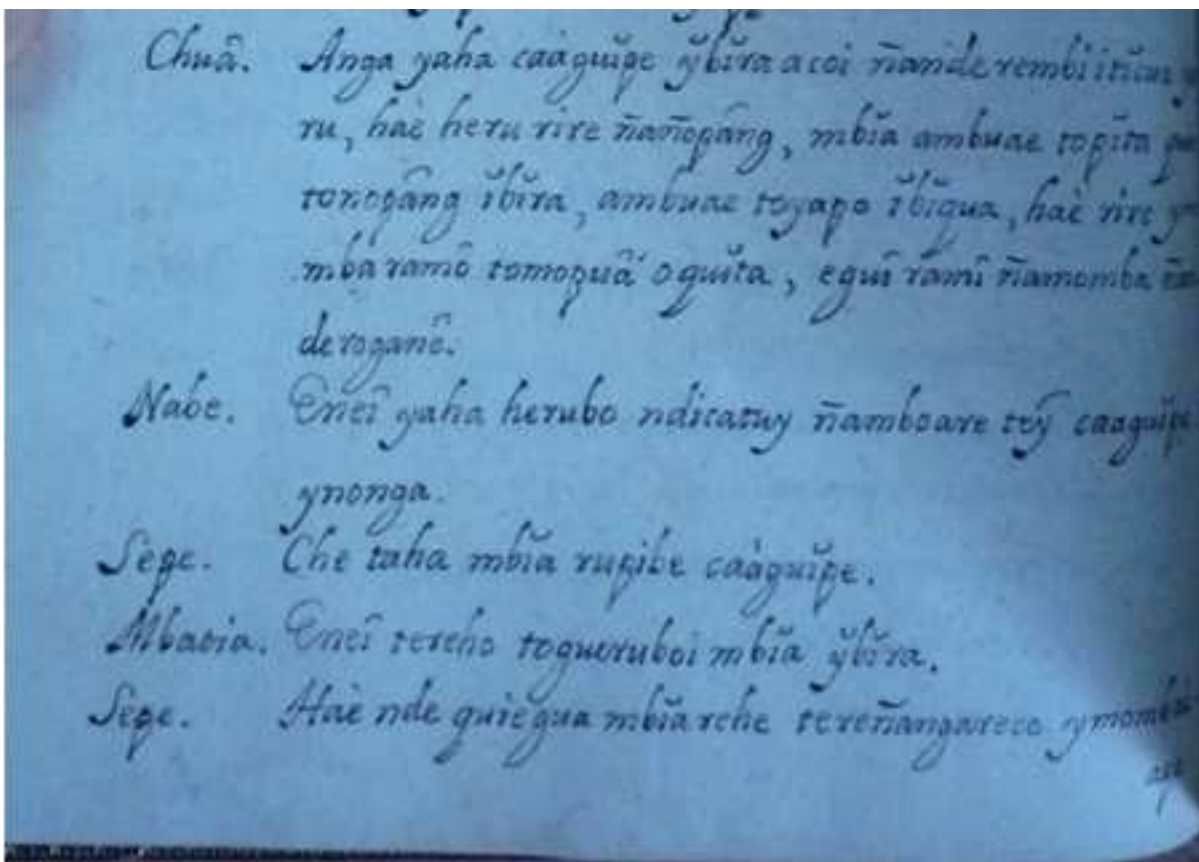 Chuâ. Anga yaha caàguĭpe ўbĭra acoi ñande rembiitĭcui
ru, haè heru rire ñañopâng, mbĭa ambuae topĭta
tonopâng ĭbĭra, ambuae toyapo ĭbĭqua, haè rire
mbaramô tomopuâ oquĭta, eguî ramî ñamomba
deroganê.
Nabe. Eneî yaha herubo ndicatuy ñamboare teỹ caaguĭpe
ynonga.
Sepe. Che taha mbĭa rupibe caàguĭpe.
Mbatia. Eneî tereho togueruboi mbĭa ўbĭra.
Sepe. Haè nde quiegua mbĭa rehe tereñangareco ymomba